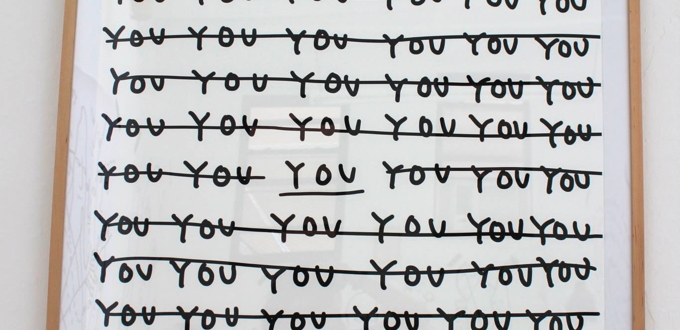 YOU YOU YOU YOU YOU YOU
YOU YOU YOU YOU YOU YOU
YOU YOU YOU YOU YOU YOU
YOU YOU YOU YOU YOU YOU
YOU YOU YOU YOU YOU YOU
YOU YOU YOU YOU YOU YOU
YOU YOU YOU YOU YOU YOU
YOU YOU YOU YOU YOU YOU